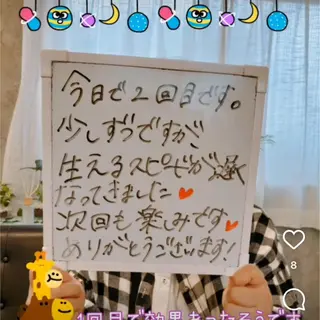 今日で2回目です。
少しずつですが、
生えるスピードが遅く
なってきました❤
次回も楽しみです❤
ありがとうございます!
8
1回目で効果あったそうです